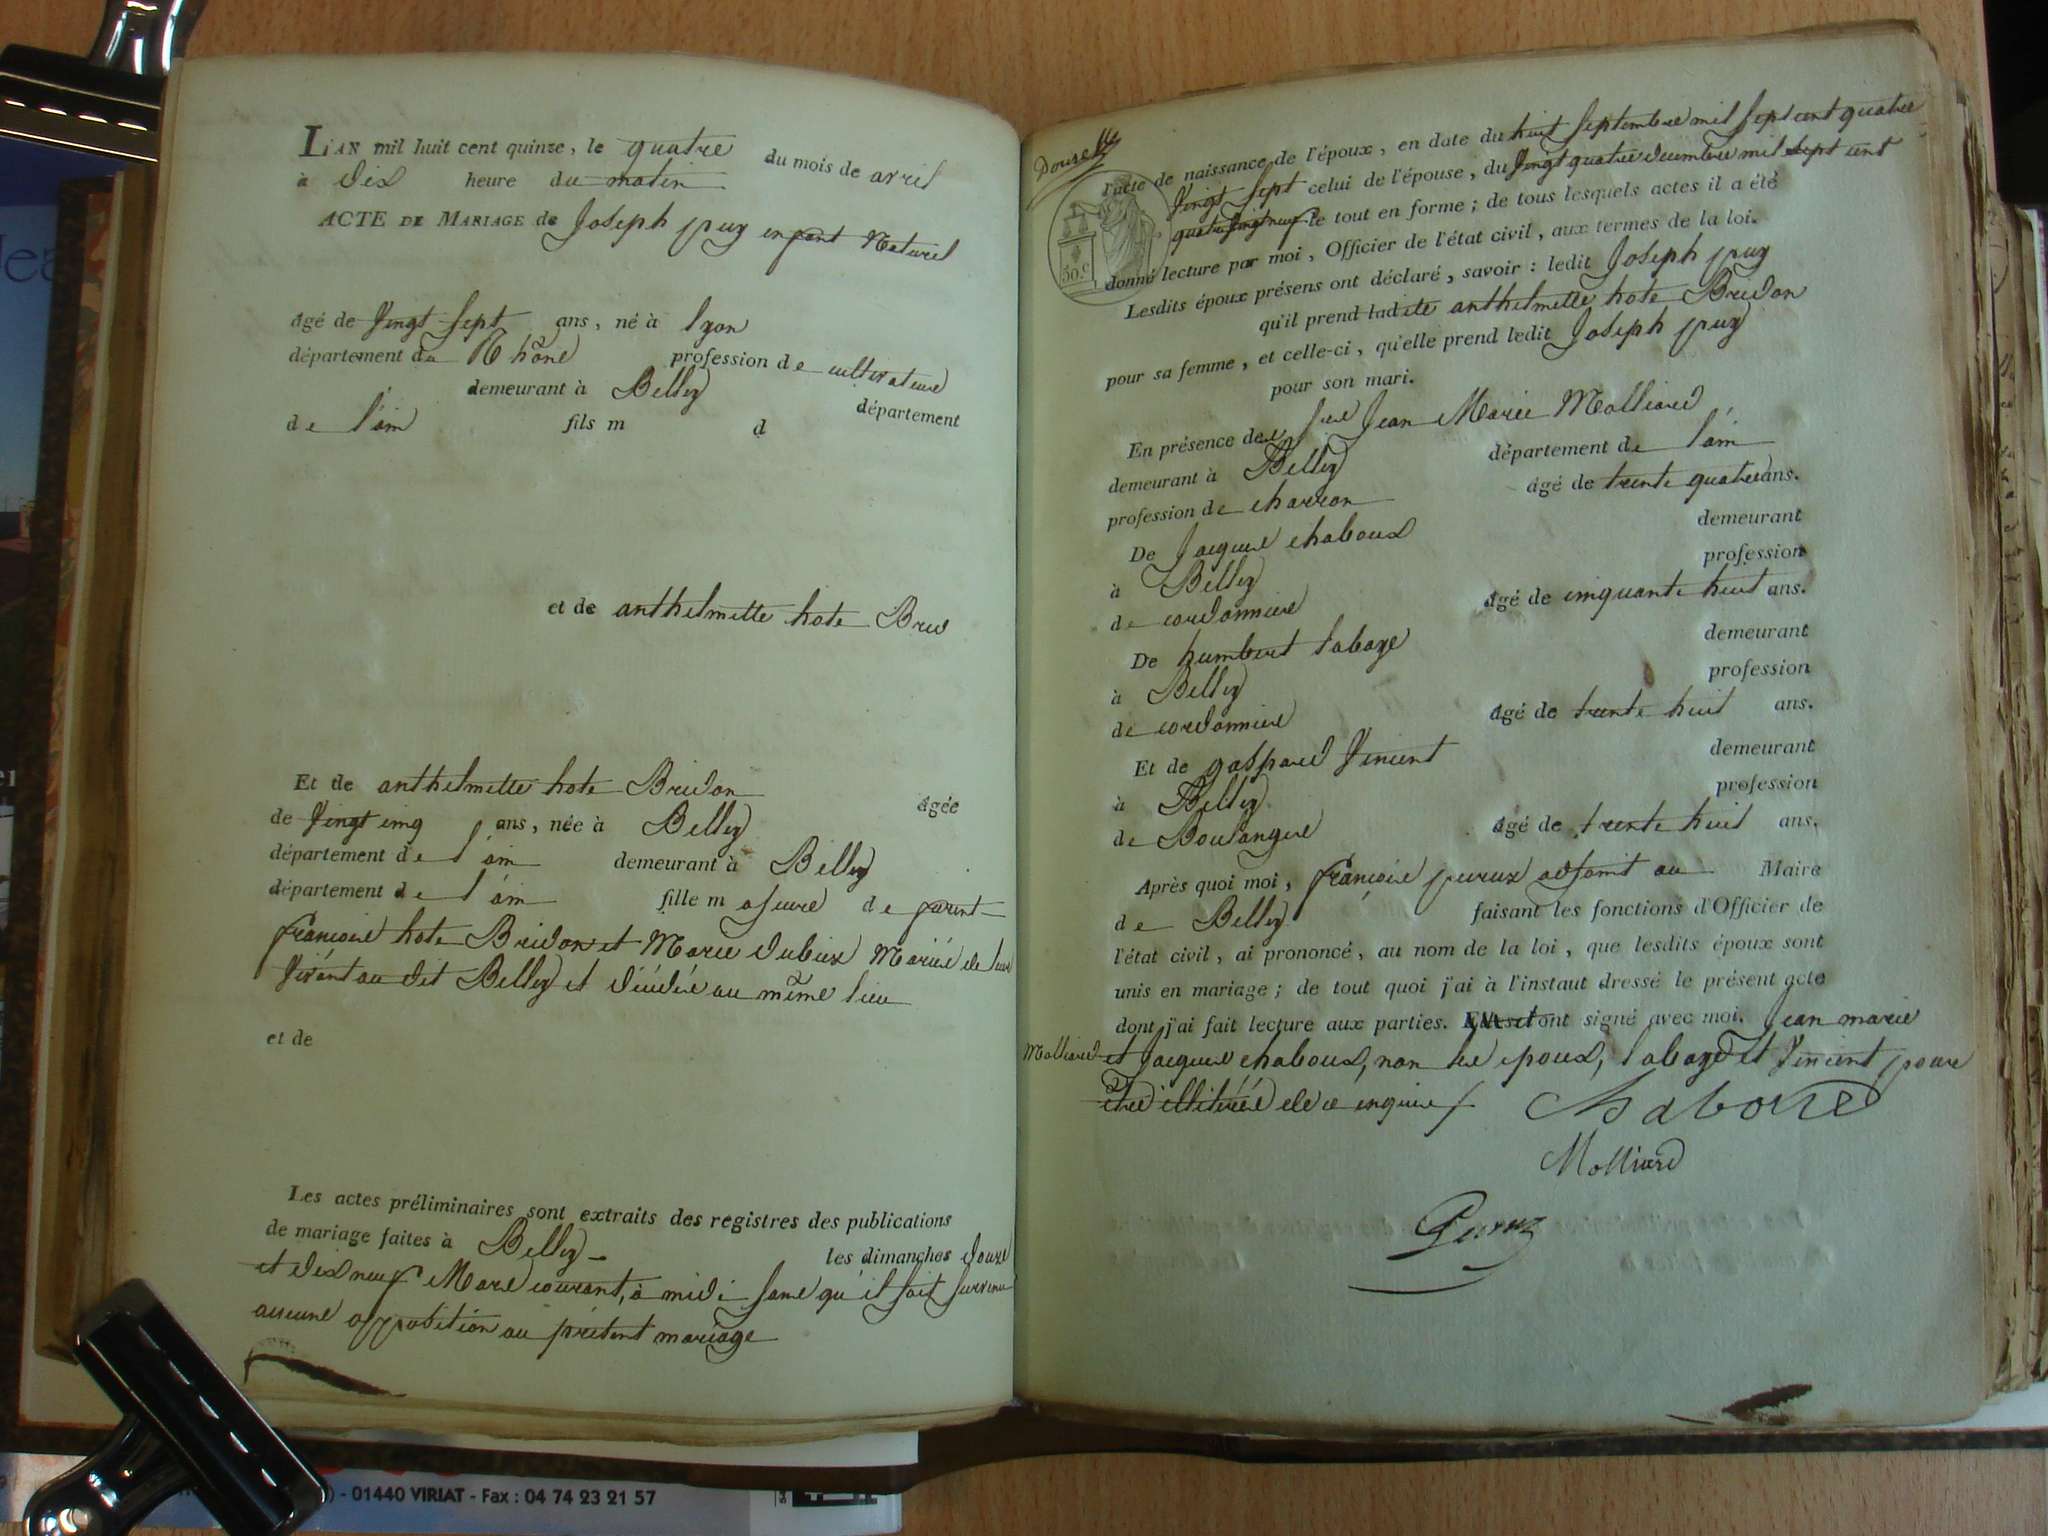 L'AN mil huit cent quinze, le quatre du mois de avril
à dix heure du matin
ACTE DE MARIAGE de Joseph puy enfant Naturel
âgé de Vingt Sept ans, né à lyon
département du Rhône profession de cultivateur
demeurant à Belley département
de l'ain fils m d
et de anthelmette hote Brid
Et de anthelmette hote Bridon âgée
de Vingt cinq ans, née à Belley
département de l'ain demeurant à Belley
département de l'ain fille m ajeure de parent
françois hote Bridon et Marie dubieux Mariés de leur
Vivant au dit Belley et décédés au même lieu
et de
Les actes préliminaires sont extraits des registres des publications
de mariage faites à Belley les dimanches douze
et dix neuf Mars courant, à midi sans qu'il soit survenu
aucune opposition au présent mariage
Douze
30.c
l'acte de naissance de l'époux, en date du huit Septembre mil sept cent quatre
Vingt Sept celui de l'épouse, du Vingt quatre decembre mil sept cent
quatre Vingt neuf le tout en forme; de tous lesquels actes il a été
donné lecture par moi, Officier de l'état civil, aux termes de la loi.
Lesdits époux présens ont déclaré, savoir : ledit Joseph puy
qu'il prend ladite anthelmette hote Bridon
pour sa femme, et celle-ci, qu'elle prend ledit Joseph puy
pour son mari.
En présence de Jean Marie Molliard
demeurant à Belley département de l'ain
profession de charron âgé de trente quatre ans.
De Jacques chaboux demeurant
à Belley profession
de cordonnier âgé de cinquante huit ans.
De humbert labaye demeurant
à Belley profession
de cordonnier âgé de trente huit ans.
Et de gaspard Vincent demeurant
à Belley profession
de Boulanger âgé de trente huit ans.
Après quoi moi, françois peruz adjoint au Maire
de Belley faisant les fonctions d'Officier de
l'état civil, ai prononcé, au nom de la loi, que lesdits époux sont
unis en mariage; de tout quoi j'ai à l'instant dressé le présent acte
dont j'ai fait lecture aux parties. Et ont signé avec moi. Jean marie
Molliard et Jacques chaboux, non les epoux, labaye et Vincent pour
être illitérés de ce enquis
Chaboux
Molliard
Peruz
) - 01440 VIRIAT - Fax : 04 74 23 21 57